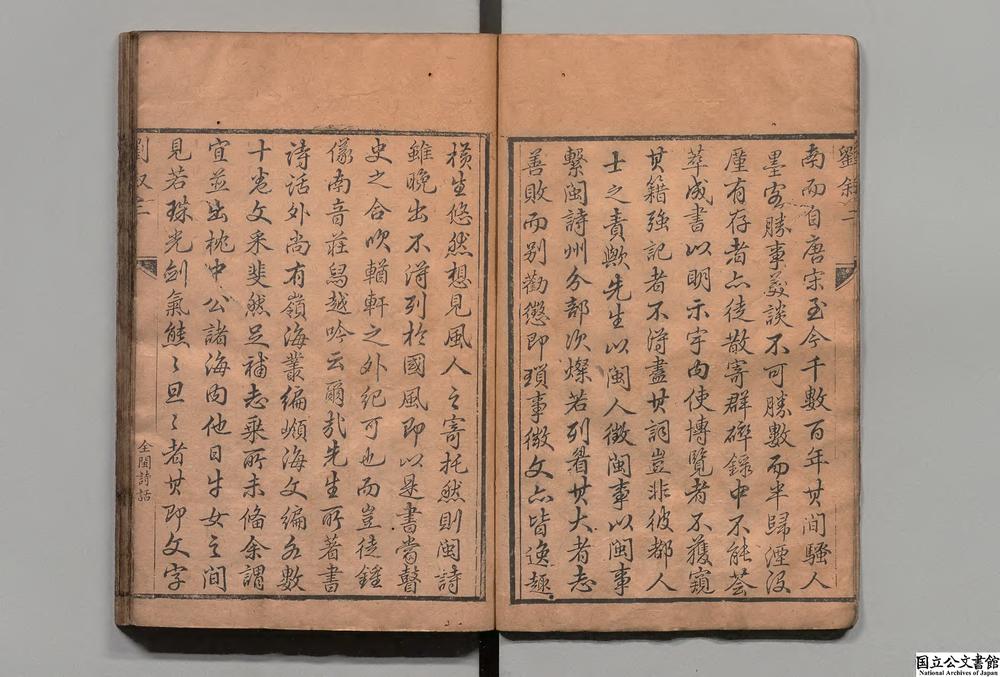 劉叙 二
南而自唐宋至今千數百年其間騷人
墨客勝事美談不可勝數而半歸湮沒
廑有存者亦徒散寄群碎錄中不能薈
萃成書以明示宇內使博覽者不獲窺
其籍強記者不得盡其詞豈非彼都人
士之責歟先生以閩人徵閩事以閩事
繫閩詩州分部次燦若列眉其大者志
善敗而别勸懲即瑣事微文亦皆逸趣
橫生悠然想見風人之寄托然則閩詩
雖晚出不得列於國風即以是書當瞽
史之合吹輶軒之外紀可也而豈徒鍾
儀南音莊舄越吟云爾哉先生所著書
詩話外尚有嶺海叢編瀕海文編各數
十卷文采斐然足補志乘所未備余謂
宜並出枕中公諸海內他日牛女之間
見若珠光劍氣熊〻旦〻者其即文字
劉叙 二
全閩詩話
国立公文書館
National Archives of Japan